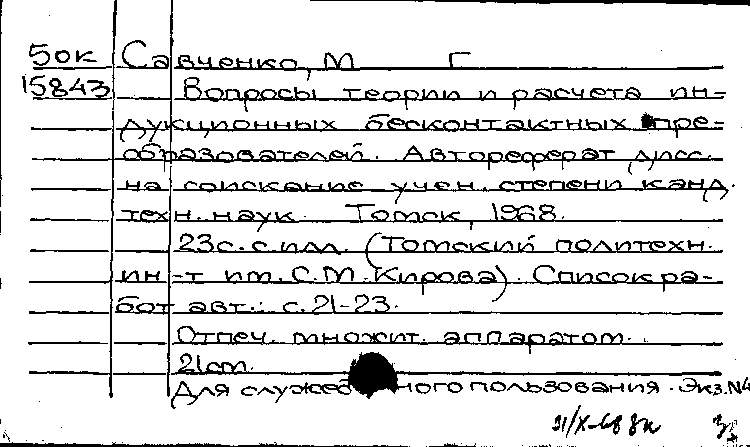 50к Савченко, М Г
15843 Вопросы теории и расчета ин-
дукционных бесконтактных пре-
образователей. Автореферат дисс.
на соискание учен. степени канд.
техн. наук. Томск, 1968.
23с. с илл. (Томский политехн.
ин-т им. С.М. Кирова). Список ра-
бот авт.: с. 21-23.
Отпеч. множит. аппаратом.
21см.
Для служебного пользования. Экз.N4